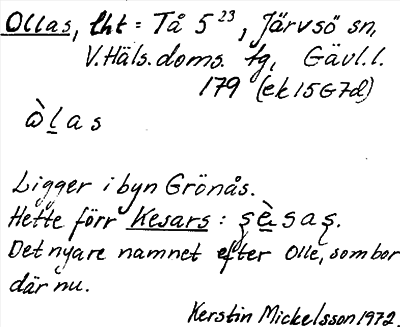 Ollas, lht = Tå 5²³, Järvsö sn,
V.Häls. doms. fg, Gävl.l.
179 (ek 15G7d)
ò̀l̲as
Ligger i byn Grönås.
Hette förr Kesars : ʂèsaʂ.
Det nyare namnet efter Olle, som bor
där nu.
Kerstin Mickelsson 1972.